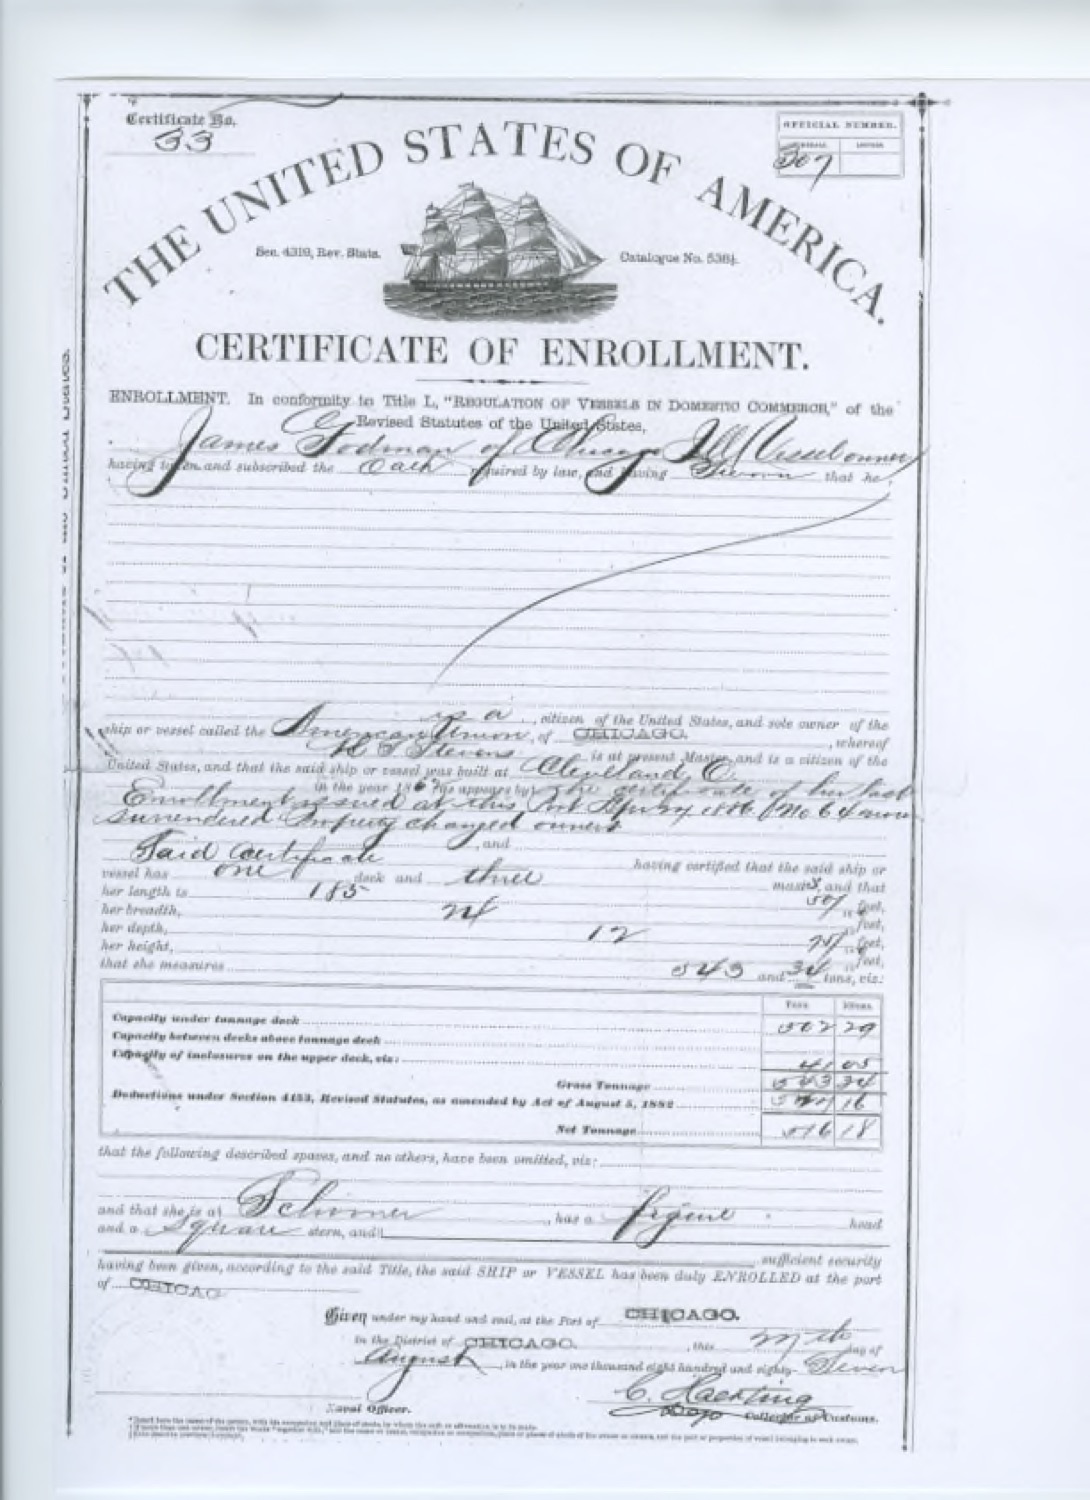 Certificate No.
33
OFFICIAL NUMBER.
307
THE UNITED STATES OF AMERICA.
Sec. 4319, Rev. Stats.
Catalogue No. 538½.
CERTIFICATE OF ENROLLMENT.
ENROLLMENT. In conformity to Title L, "REGULATION OF VESSELS IN DOMESTIC COMMERCE," of the
Revised Statutes of the United States,
James Godman of Chicago Ill Vessel owner
having taken and subscribed the Oath required by law, and having Sworn that he
is a citizen of the United States, and sole owner of the
ship or vessel called the American Union, of CHICAGO. , whereof
K S Stevens is at present Master, and is a citizen of the
United States, and that the said ship or vessel was built at Cleveland, O.
in the year 186 as appears by the certificate of her last
Enrollment issued at this Port 1886 No 64 now
surrendered Property changed owners
, and
Said certificate having certified that the said ship or
vessel has one deck and three masts, and that
her length is 185 feet,
her breadth, 24 feet,
her depth, 12 feet,
her height, feet,
that she measures 543 and 34 tons, viz:
TONS
Capacity under tonnage deck 502 29
Capacity between decks above tonnage deck
Capacity of inclosures on the upper deck, viz: 41 05
Gross Tonnage 543 34
Deductions under Section 4153, Revised Statutes, as amended by Act of August 5, 1882 16
Net Tonnage 516 18
that the following described spaces, and no others, have been omitted, viz:
and that she is a Schooner , has a figure head
and a Square stern, and
sufficient security
having been given, according to the said Title, the said SHIP or VESSEL has been duly ENROLLED at the port
of CHICAGO
Given under my hand and seal, at the Port of CHICAGO.
in the District of CHICAGO. , this 27th day of
August , in the year one thousand eight hundred and eighty- Seven
C. Haerting
Naval Officer.
Depy Collector of Customs.